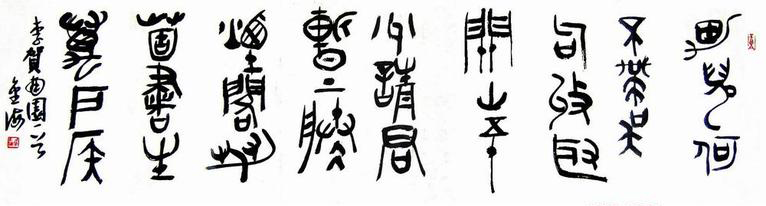 男兒何
不帶吳
句收取
關山五十
州請君
暫上凌
煙閣若
箇書生
萬戶侯
李賀南園一首
金海